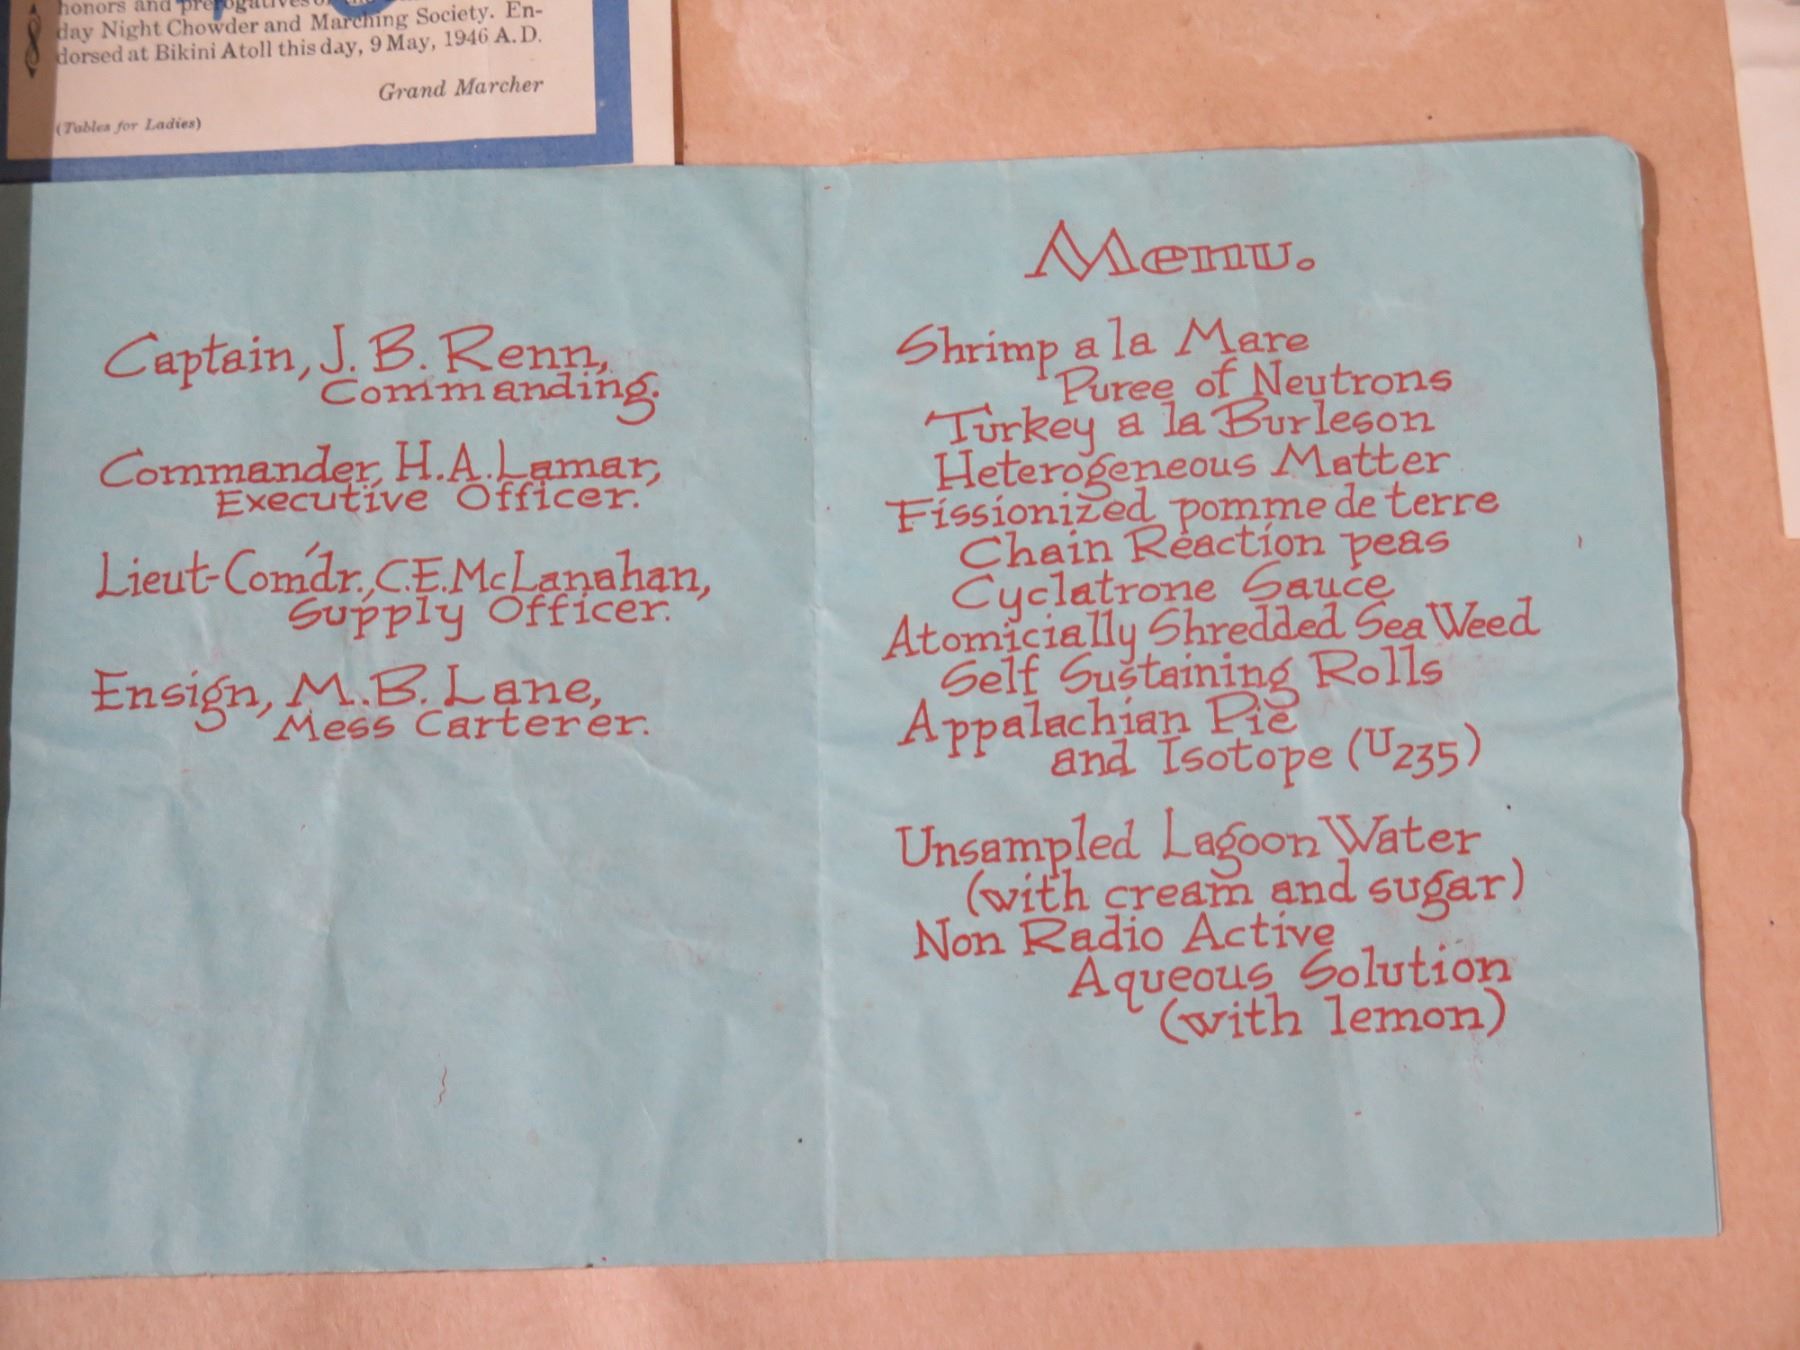 honors and prerogatives of the
day Night Chowder and Marching Society. En-
dorsed at Bikini Atoll this day, 9 May, 1946 A.D.
Grand Marcher
(Tables for Ladies)
Captain, J. B. Renn,
Commanding.
Commander, H.A. Lamar,
Executive Officer.
Lieut-Com'dr., C.E. McLanahan,
Supply Officer.
Ensign, M.B. Lane,
Mess Carterer.
Menu.
Shrimp a la Mare
Puree of Neutrons
Turkey a la Burleson
Heterogeneous Matter
Fissionized pomme de terre
Chain Reaction peas
Cyclatrone Sauce
Atomicially Shredded Sea Weed
Self Sustaining Rolls
Appalachian Pie
and Isotope (U235)
Unsampled Lagoon Water
(with cream and sugar)
Non Radio Active
Aqueous Solution
(with lemon)